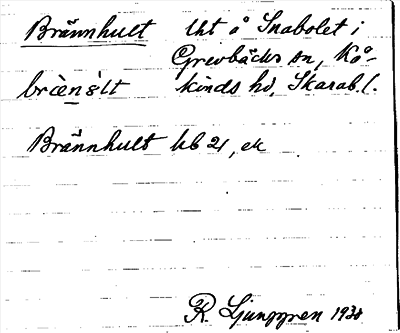 Brännhult Uht å Snabolet i
Grevbäcks sn, Kå-
kinds hd, Skarab. l.
Brännhult hb 21, ek
R. Ljunggren 1938